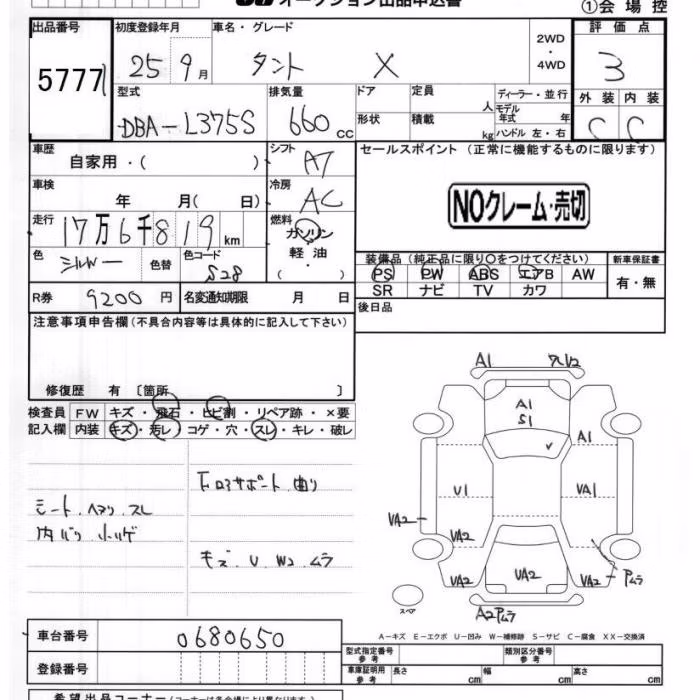 オークション出品申込書
①会 場 控
出品番号
5777
初度登録年月
25 9月
車名・グレード
タント X
2WD
・
4WD
評 価 点
3
型式
DBA-L375S
排気量
660 cc
ドア
定員
人
形状
積載
kg
ディーラー・並行
モデル年式 年
ハンドル 左・右
外 装 内 装
C C
車歴
自家用・( )
シフト
A7
セールスポイント (正常に機能するものに限ります)
NOクレーム・売切
車検
年 月( 日)
冷房
AC
走行
17万6千819km
燃料
ガソリン
軽 油
( ・ )
色
シルバー
色替
色コード
S28
装備品 (純正品に限り○をつけてください)
新車保証書
PS PW ABS エアB AW
有・無
SR ナビ TV カワ
R券
9200 円
名変通知期限 月 日
後日品
注意事項申告欄(不具合内容等は具体的に記入して下さい)
修復歴 有 〔箇所 〕
検査員 FW キズ・飛石・ヒビ割・リペア跡・×要
記入欄 内装 キズ・汚レ・コゲ・穴・スレ・キレ・破レ
下回りサポート 曲り
シート、ヘタリ、スレ
内バリ
キズ、U、W2、ムラ
A1
A1
S1
A1
U1
VA1
VA2
VA2
VA2
VA2
VA2
Pムラ
スペア
A2Pムラ
A−キズ E−エクボ U−凹み W−補修跡 S−サビ C−腐食 XX−交換済
車台番号
0680650
登録番号
型式指定番号
参 考
類別区分番号
参 考
車庫証明用
参 考
長さ cm
幅 cm
高さ cm
希望出品コーナー